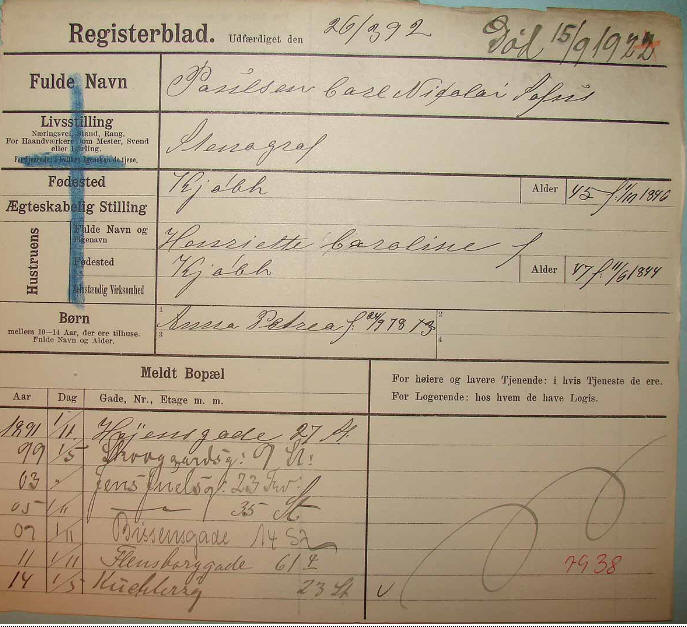 Registerblad. Udfærdiget den 26/3 92 Død 15/9 1922
Fulde Navn Paulsen Carl Nicolai Sofus
Livsstilling
Næringsvei, Stand, Rang.
For Haandværkere om Mester, Svend
eller Lærling.
Stenograf
Fødested Kjøbh Alder 45 f. /10 1846
Ægteskabelig Stilling
Hustruens
Fulde Navn og Pigenavn Henriette Caroline f
Fødested Kjøbh Alder 47 f. 11/6 1844
Selvstændig Virksomhed
Børn
mellem 10–14 Aar, der ere tilhuse.
Fulde Navn og Alder.
1 Anna Petrea f. 24/9 78 13 2
3 4
Meldt Bopæl
For høiere og lavere Tjenende: i hvis Tjeneste de ere.
For Logerende: hos hvem de have Logis.
Aar Dag Gade, Nr., Etage m. m.
1891 1/11 Højensgade 27 St.
99 1/5 Skovgaardsg: 9 St:
03 " Jens Juelsg: 23
05 1/11 — " — 35 St
07 1/11 Bissensgade 14 St
11 1/11 Flensborggade 61 4
14 1/5 Kuchlersg 23 St v
7938